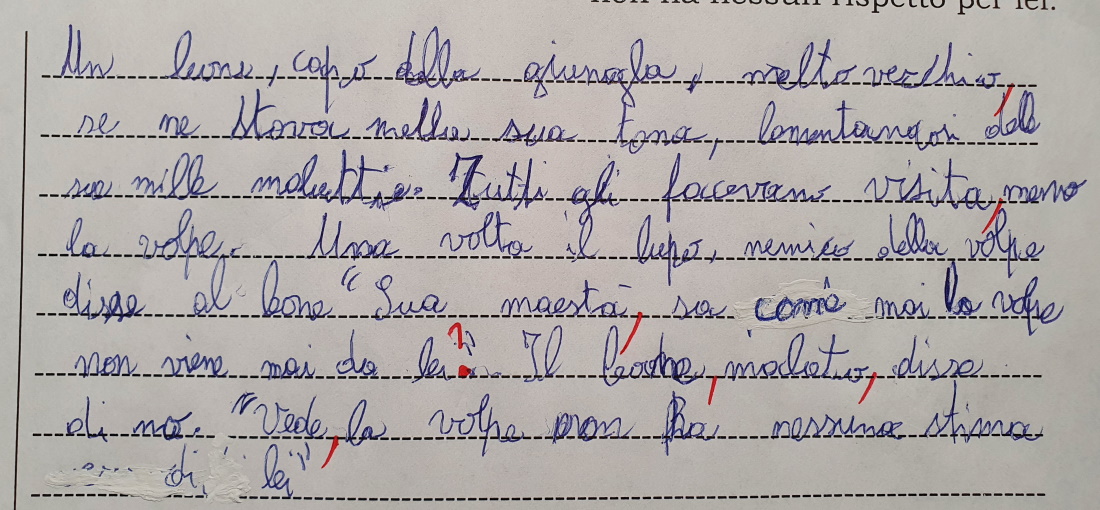 non ha nessun rispetto per lei.
Un leone, capo della giungla, molto vecchio,
se ne stava nella sua tana, lamentandosi delle
sue mille malattie. Tutti gli facevano visita, meno
la volpe. Una volta il lupo, nemico della volpe
disse al leone "Sua maestà, sa come mai la volpe
non viene mai da lei?" Il leone, malato, disse
di no. "Vede, la volpe non ha nessuna stima
di lei"